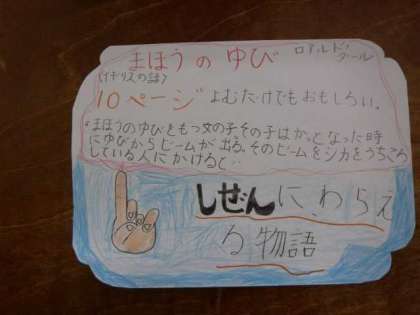 まほうのゆび
ロアルド・ダール
(イギリスの話)
10ページよむだけでもおもしろい。
まほうのゆびをもつ女の子その子はかっとなった時
にゆびからビームが出る。そのビームをシカをうちころ
している人にかけると…
しぜんに、わらえ
る物語